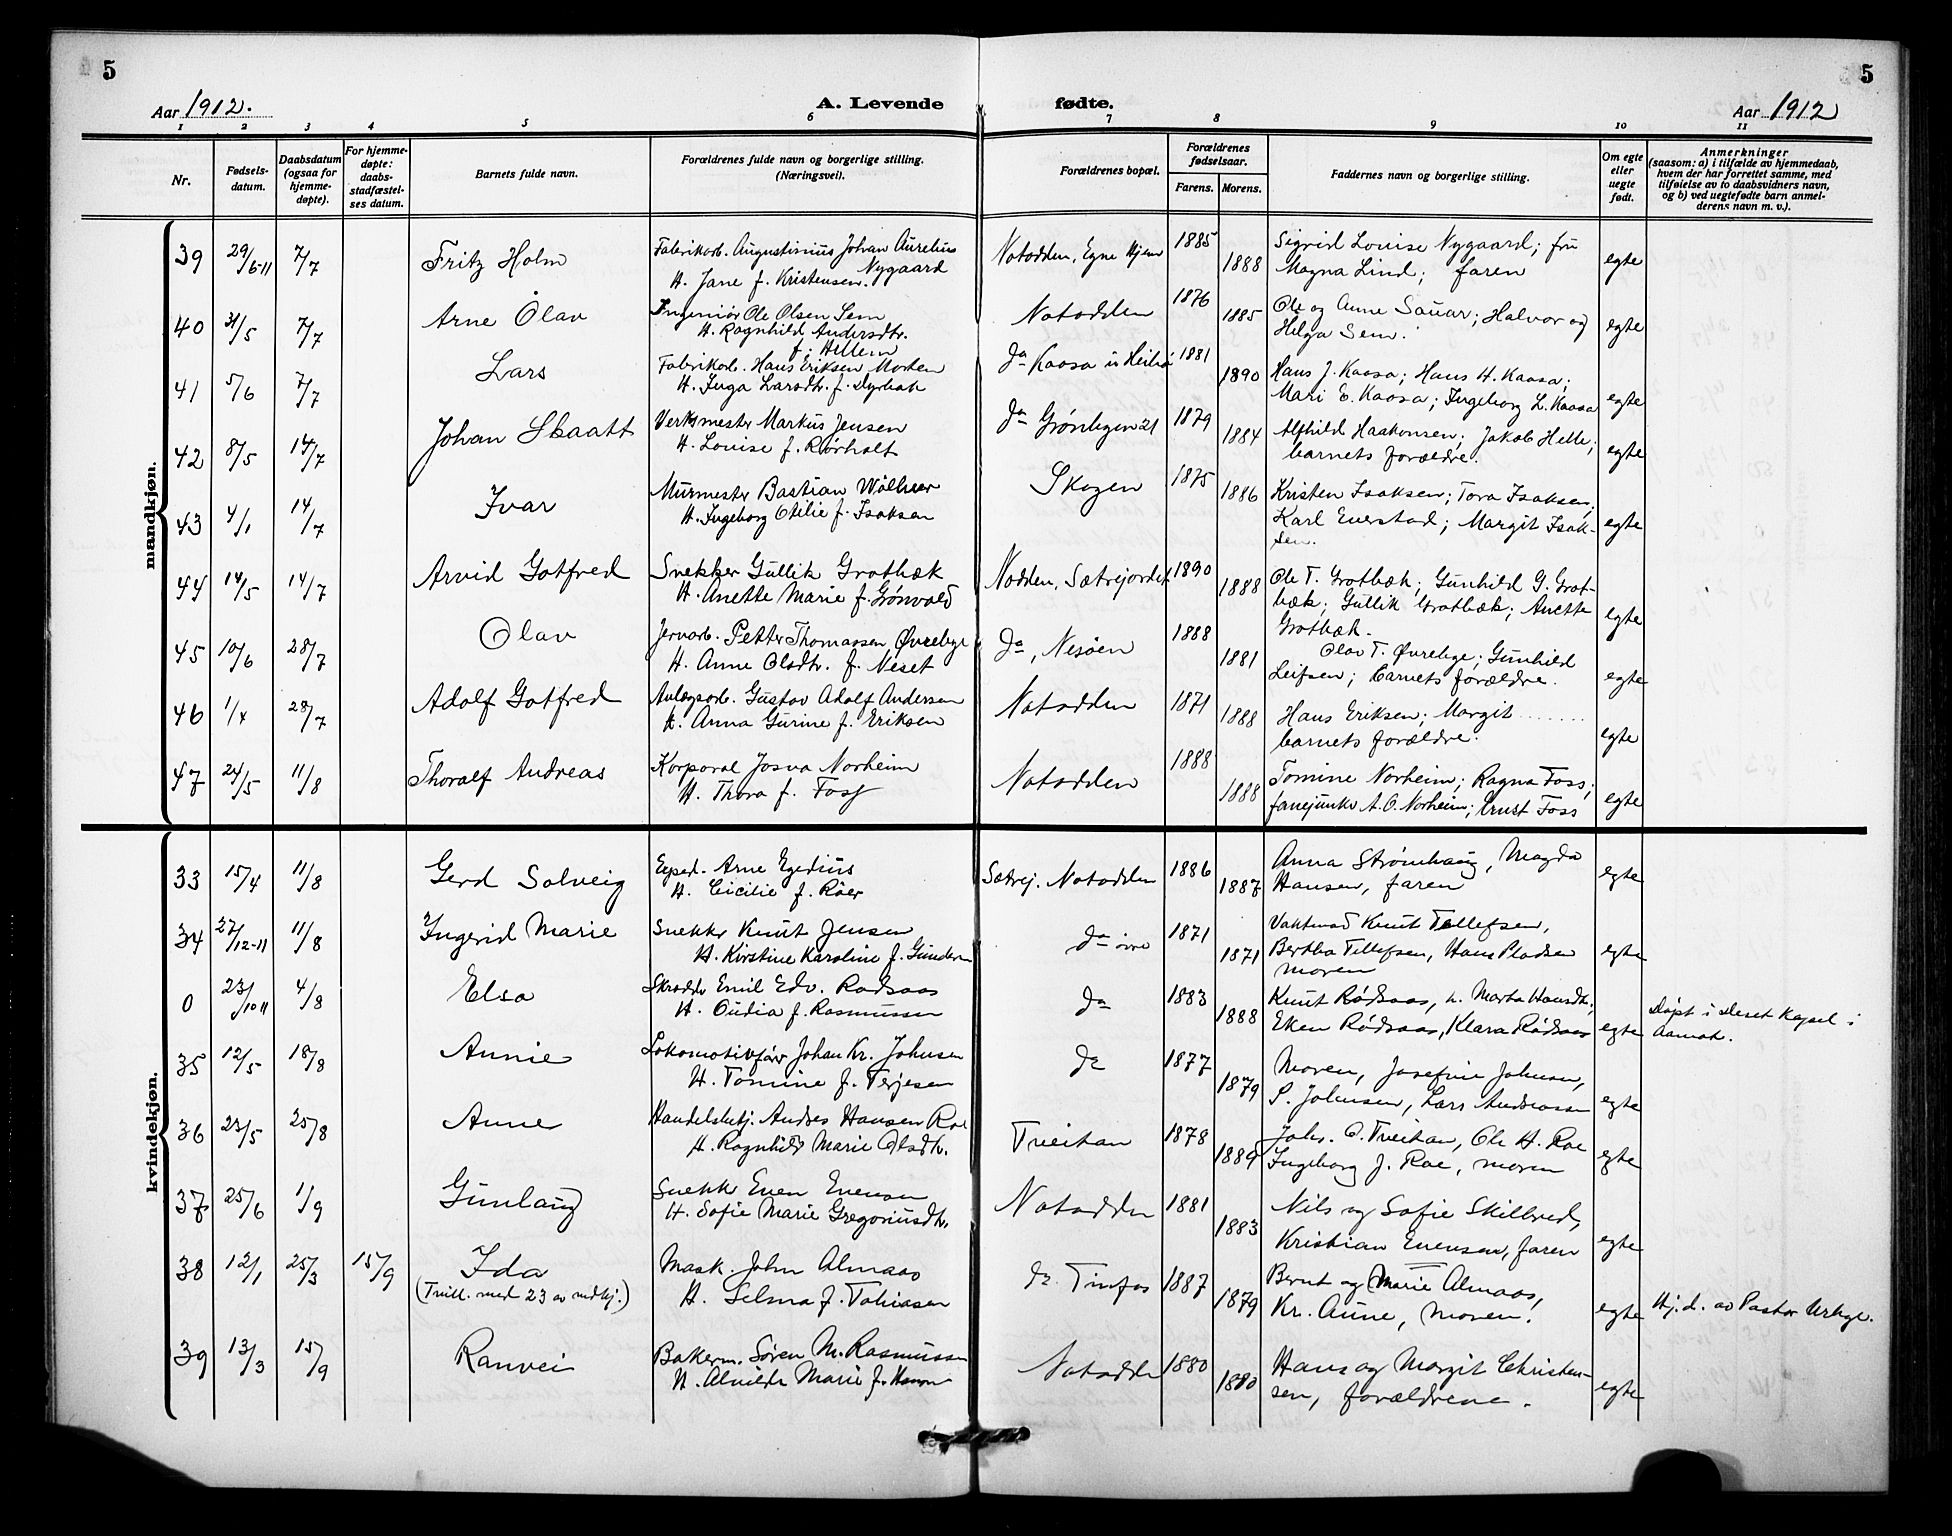 5
5
Aar 1912.
A. Levende fødte.
Aar 1912
1 2 3 4 5 6 7 8 9 10 11
Nr.
Fødsels-
datum.
Daabsdatum
(ogsaa for
hjemme-
døpte).
For hjemme-
døpte:
daabs-
stadfæstel-
ses datum.
Barnets fulde navn.
Forældrenes fulde navn og borgerlige stilling.
(Næringsvei).
Forældrenes bopæl.
Forældrenes
fødselsaar.
Farens. Morens.
Faddernes navn og borgerlige stilling.
Om egte
eller
uegte
født.
Anmerkninger
(saasom: a) i tilfælde av hjemmedaab,
hvem der har forrettet samme, med
tilføielse av to daabsvidners navn,
og b) ved uegtefødte barn anmel-
derens navn m. v.).
mandkjøn.
39 29/6-11 7/7 Fritz Holm
Fabrikarb. Augustinius Johan Aurelius
Nygaard
H. Jane f. Kristensen.
Notodden, Egne Hjem 1885 1888
Sigrid Louise Nygaard; fru
Magna Lind; faren egte
40 31/5 7/7 Arne Olav
Ingeniör Ole Olsen Sem
H. Ragnhild Andersdtr.
f. Hellem
Notodden 1876 1885
Ole og Anne Sauar; Halvor og
Helga Sem. egte
41 5/6 7/7 Lars
Fabrikarb. Hans Eriksen Morken
H. Inga Larsdtr. f. Dyrbak
da Kaasa i Heibø 1881 1890
Hans J. Kaasa; Hans H. Kaasa;
Mari E. Kaasa; Ingeborg L. Kaasa egte
42 8/5 14/7 Johan Skaatt
Verksmester Markus Jensen
H. Louise f. Rørholt
da Grønbyen 21 1879 1884
Alfhild Haakonsen; Jakob Helle;
barnets forældre. egte
43 4/1 14/7 Ivar
Murmester Bastian Wølner
H. Ingeborg Otilie f. Isaksen
Skogen 1875 1886
Kristen Isaksen; Tora Isaksen;
Karl Everstad; Margit Isak-
sen. egte
44 14/5 14/7 Arvid Gotfred
Snekker Gullik Grotbæk
H. Anette Marie f. Grønvold
Nodden, Sætrejordet 1890 1888
Ole T. Grotbæk; Gunhild G. Grot-
bæk; Gullik Grotbæk; Anette
Grotbæk. egte
45 10/6 28/7 Olav
Jernarb. Petter Thomassen Øvrebye
H. Anne Olsdtr. f. Neset
da, Nesøen 1888 1881
Olav T. Øvrebye; Gunhild
Leifsen; barnets forældre. egte
46 1/4 28/7 Adolf Gotfred
Anlægsarb. Gustav Adolf Andersen
H. Anna Gurine f. Eriksen
Notodden 1871 1888
Hans Eriksen; Margit ........
barnets forældre. egte
47 24/5 11/8 Thoralf Andreas
Korporal Josva Norheim
H. Thora f. Foss
Notodden 1888 1888
Tomine Norheim; Ragna Foss;
fanejunker A. O. Norheim; Ernst Foss egte
kvindekjøn.
33 15/4 11/8 Gerd Solveig
Exped. Arne Egedius
H. Cicilie f. Röer
Sætrej. Notodden 1886 1887
Anna Strømhaug, Magda
Hansen, faren egte
34 27/12-11 11/8 Ingerid Marie
Snekker Knut Jensen
H. Kirstine Karoline f. Gundersen
da övre 1871 1871
Vaktmand Knut Tellefsen,
Bertha Tellefsen, Hans Pladsen
moren egte
0 23/10 11 4/8 Elsa
Skrædder Emil Edv. Rødsaas
H. Oudia f. Rasmussen
da 1883 1888
Knut Rødsaas, h. Marta Hansdtr.,
Eken Rødsaas, Klara Rødsaas egte
Døpt i Deset Kapel i
Aamot.
35 12/5 18/8 Annie
Lokomotivfør Johan Kr. Johnsen
H. Tomine f. Terjesen
da 1877 1879
Moren, Josefine Johnsen,
S. Johnsen, Lars Andreassen egte
36 23/5 25/8 Anne
Handelsbetj. Andres Hansen Roe
H. Ragnhild Marie Olsdtr.
Tveitan 1878 1889
Johs. O. Tveitan, Ole H. Roe
Ingeborg J. Roe, moren egte
37 25/6 1/9 Gunlaug
Snekk Even Evensen
H. Sofie Marie Gregoriusdtr.
Notodden 1881 1883
Nils og Sofie Skilbred,
Kristian Evensen, faren egte
38 12/1 25/3 15/9 Ida
(Tvill. med 23 av mdkj.)
Mask. John Almaas
H. Selma f. Tobiasen
da Tinfos 1887 1879
Bernt og Marie Almaas,
Kr. Aune, moren. egte
Hj. d. av Pastor Urbye.
39 13/3 15/9 Ranvei
Bakerm. Søren M. Rasmussen
H. Alvilde Marie f. Hansen
Notodden 1880 1880
Hans og Margit Christen-
sen, forældrene. egte